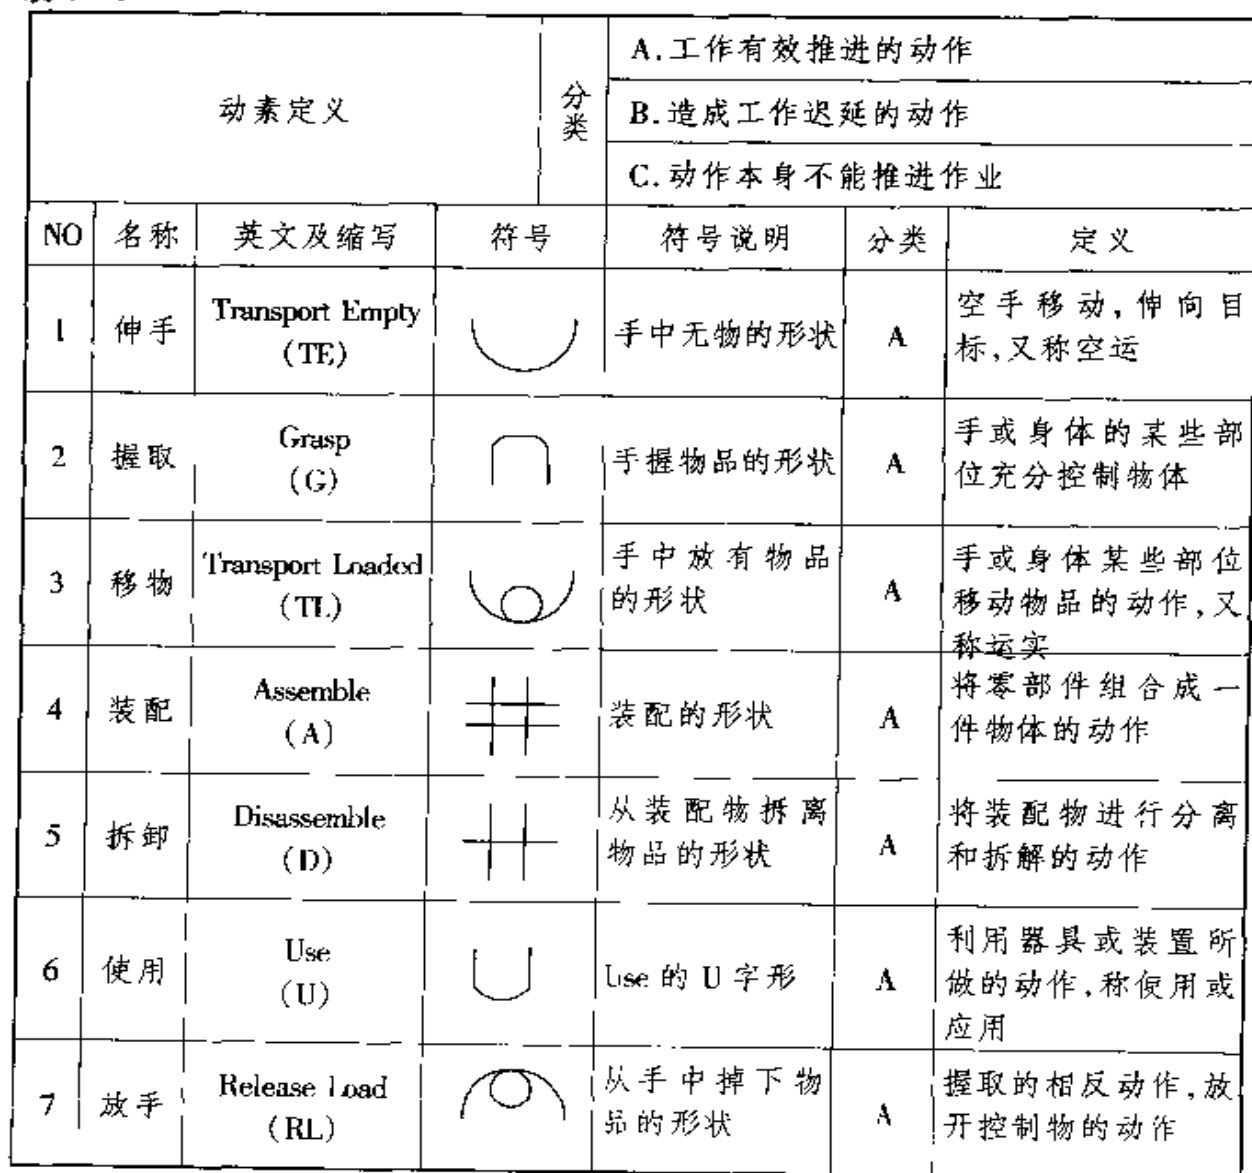 动素定义
分类
A.工作有效推进的动作
B.造成工作迟延的动作
C.动作本身不能推进作业
NO 名称 英文及缩写 符号 符号说明 分类 定义
1 伸手 Transport Empty (TE) 手中无物的形状 A 空手移动,伸向目
标,又称空运
2 握取 Grasp (G) 手握物品的形状 A 手或身体的某些部
位充分控制物体
3 移物 Transport Loaded (TL) 手中放有物品
的形状 A 手或身体某些部位
移动物品的动作,又
称运实
4 装配 Assemble (A) 装配的形状 A 将零部件组合成一
件物体的动作
5 拆卸 Disassemble (D) 从装配物拆离
物品的形状 A 将装配物进行分离
和拆解的动作
6 使用 Use (U) Use 的 U 字形 A 利用器具或装置所
做的动作,称使用或
应用
7 放手 Release Load (RL) 从手中掉下物
品的形状 A 握取的相反动作,放
开控制物的动作